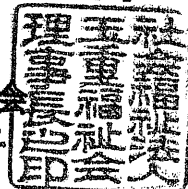 社会福祉法人
三重福祉会
理事長之印